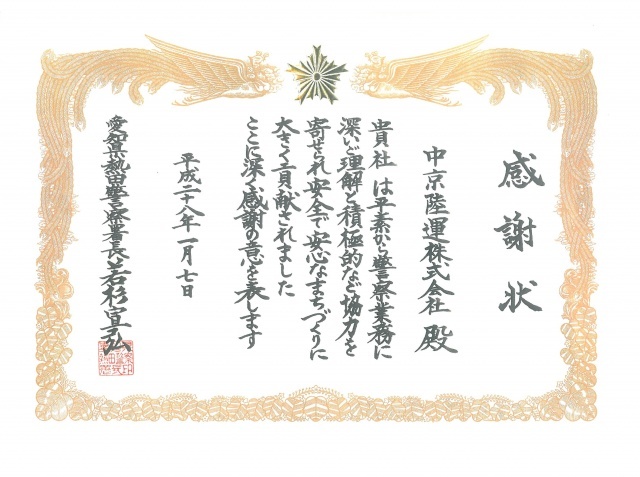 感謝状
中京陸運株式会社 殿
貴社は平素から警察業務に
深いご理解と積極的なご協力を
寄せられ安全で安心なまちづくりに
大きく貢献されました
ここに深く感謝の意を表します
平成二十八年一月七日
愛知県熱田警察署長 若杉宣弘